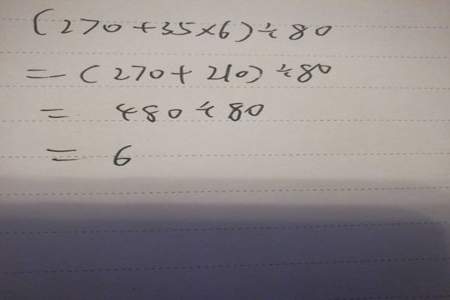 (270+35×6)÷80
=(270+210)÷80
= 480÷80
= 6